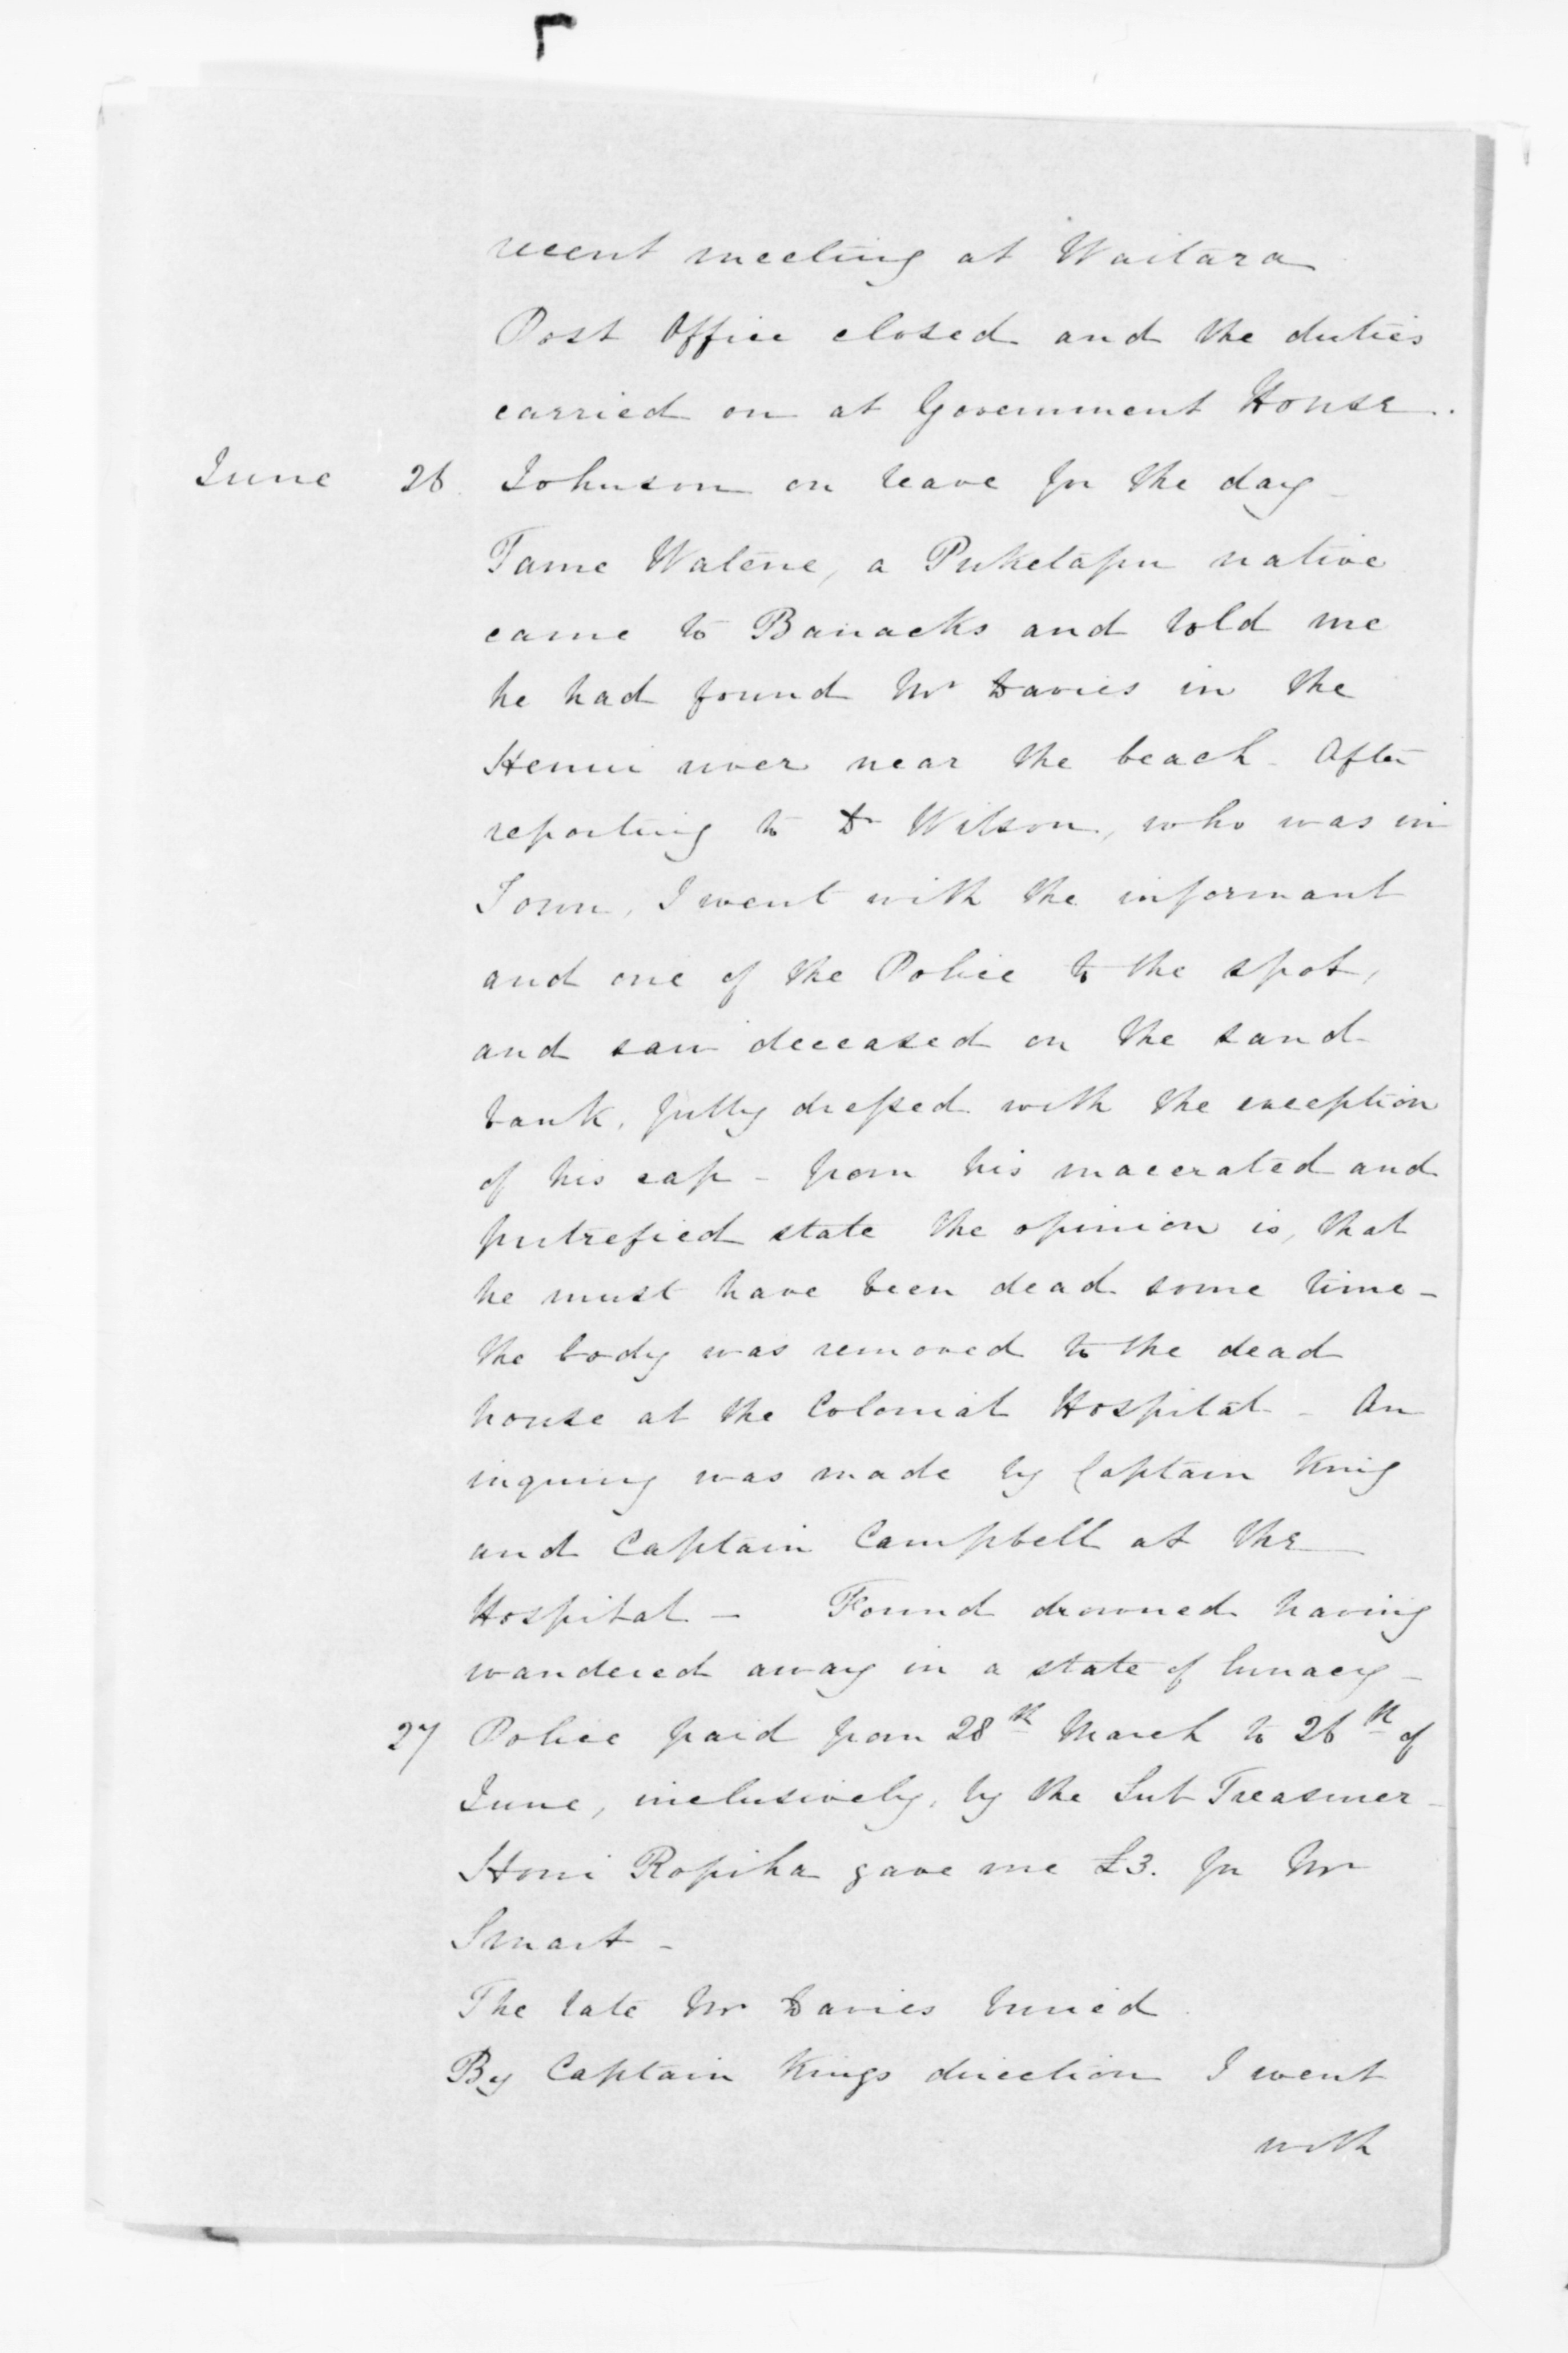 recent meeting at Waitara
Post Office closed and the duties
carried on at Government House.
June 26. Johnson on leave for the day -
Tame Watene, a Puketapu native
came to Barracks and told me
he had found Mr Davies in the
Henui river near the beach - After
reporting to Dr Wilson, who was in
Town, I went with the informant
and one of the Police to the spot,
and saw deceased on the sand
bank, fully dressed with the exception
of his cap - from his macerated and
putrefied state the opinion is, that
he must have been dead some time -
the body was removed to the dead
house at the Colonial Hospital - An
inquiry was made by Captain King
and Captain Campbell at the
Hospital - Found drowned having
wandered away in a state of lunacy -
27 Police paid from 28th March to 26th of
June, inclusively, by the Sub Treasurer -
Honi Ropiha gave me £3. for Mr
Smart -
The late Mr Davies buried.
By Captain Kings direction I went
with